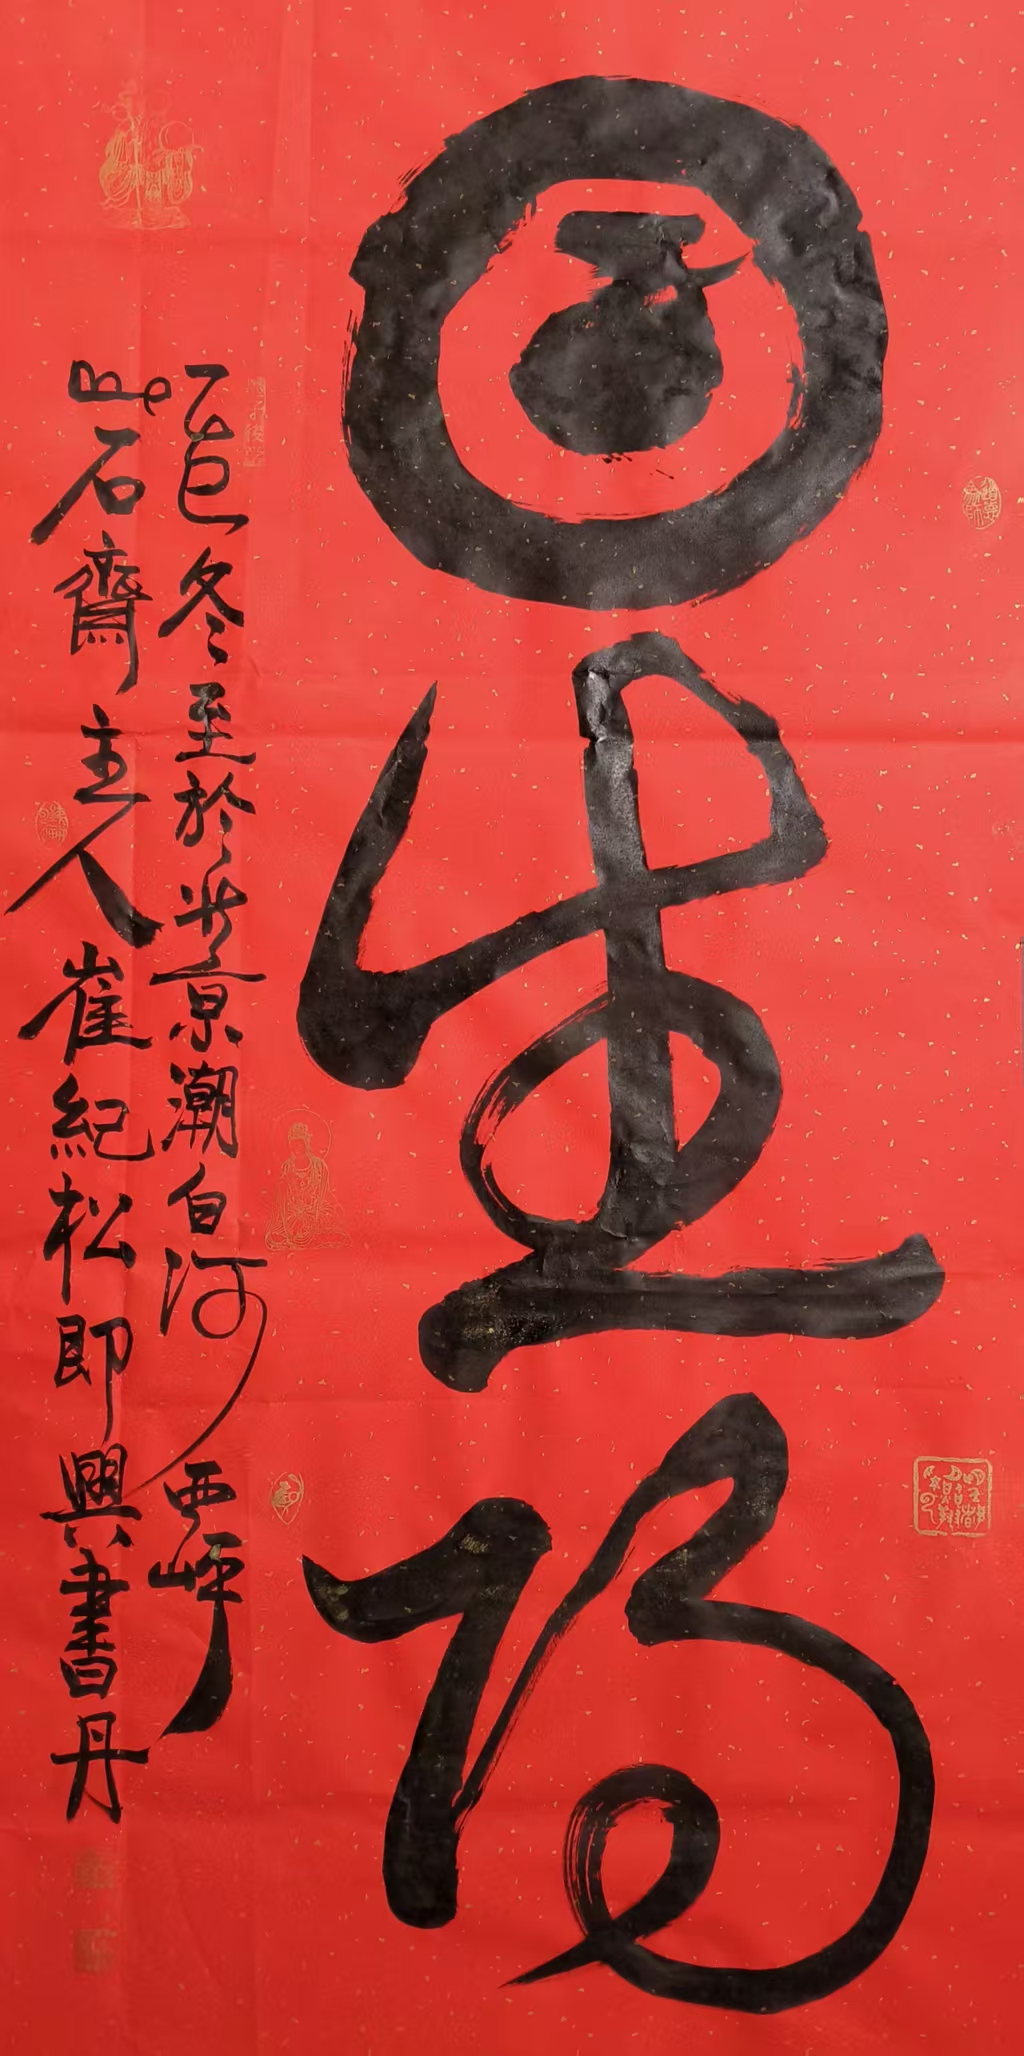 日生陽
乙巳冬至於北京潮白河西岸
石齋主人崔紀松即興書丹